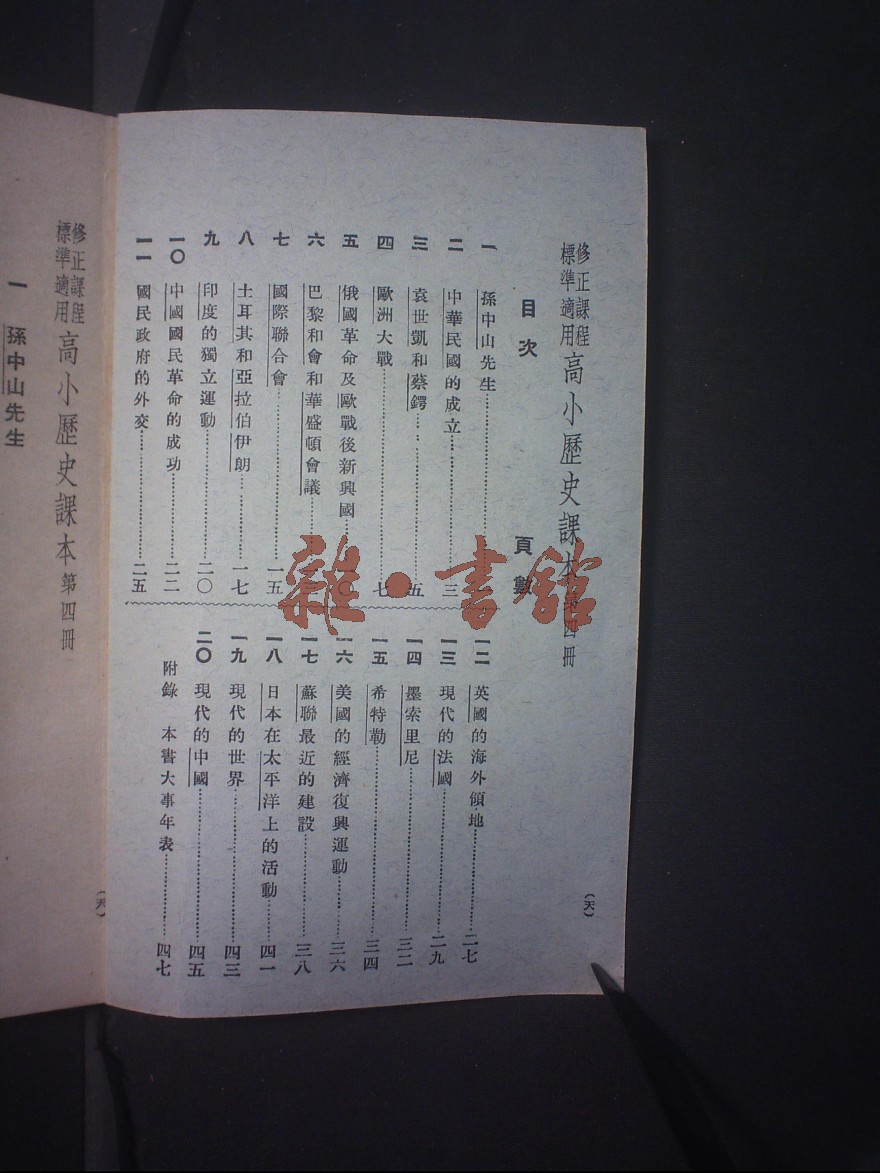 修正課程標準適用高小歷史課本第四冊
目次 頁數
一 孫中山先生
二 中華民國的成立 三
三 袁世凱和蔡鍔 五
四 歐洲大戰 七
五 俄國革命及歐戰後新興國 一〇
六 巴黎和會和華盛頓會議
七 國際聯合會 一五
八 土耳其和亞拉伯伊朗 一七
九 印度的獨立運動 二〇
一〇 中國國民革命的成功 二二
一一 國民政府的外交 二五
一二 英國的海外領地 二七
一三 現代的法國 二九
一四 墨索里尼 三二
一五 希特勒 三四
一六 美國的經濟復興運動 三六
一七 蘇聯最近的建設 三八
一八 日本在太平洋上的活動 四一
一九 現代的世界 四三
二〇 現代的中國 四五
附錄 本書大事年表 四七
(天)
修正課程標準適用高小歷史課本第四冊
一 孫中山先生
(天)
雜·書館